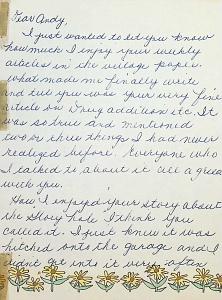 Dear Andy,
I just wanted to let you know
how much I enjoy your weekly
articles in the village paper.
What made me finally write
and tell you was your very fine
article on Drug addition etc. It
was so true and mentioned
two or three things I had never
realized before. Everyone who
I talked to about it all agreed
with you.
How I enjoyed your story about
the Glory Hole I think you
called it. I just knew it was
hitched onto the garage and I
didnt get into it very often